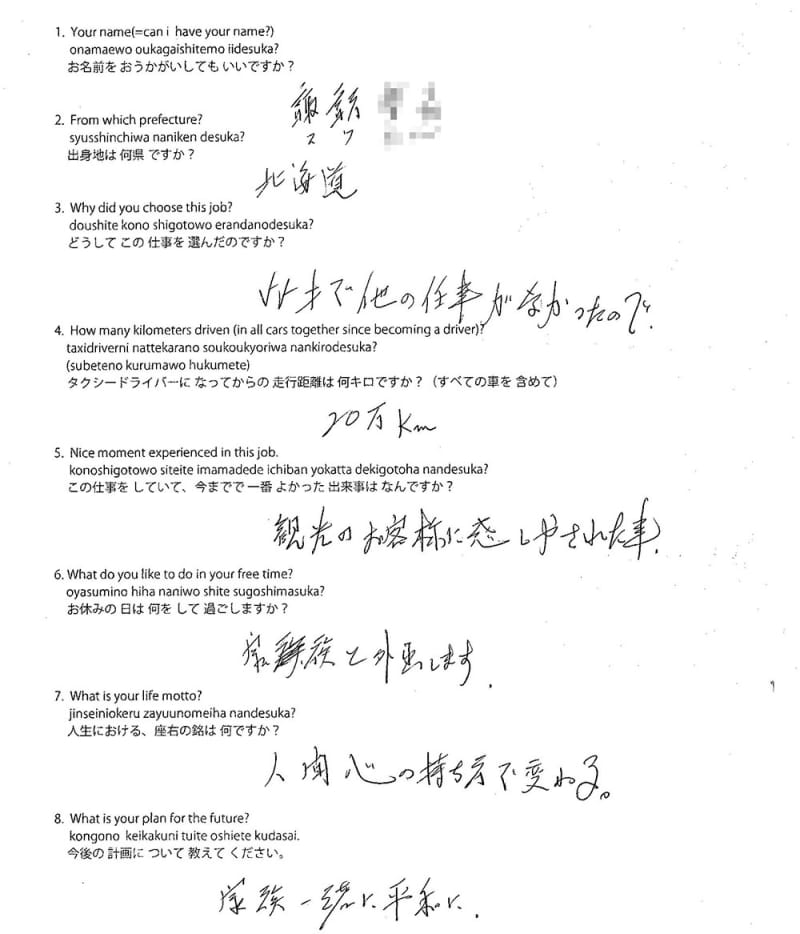 1. Your name(=can i have your name?)
onamaewo oukagaishitemo iidesuka?
お名前を おうかがいしても いいですか？
諏訪
スワ
2. From which prefecture?
syusshinchiwa naniken desuka?
出身地は 何県 ですか？
北海道
3. Why did you choose this job?
doushite kono shigotowo erandanodesuka?
どうして この 仕事を 選んだのですか？
55才で他の仕事がなかったので.
4. How many kilometers driven (in all cars together since becoming a driver)?
taxidriverni nattekarano soukoukyoriwa nankirodesuka?
(subeteno kurumawo hukumete)
タクシードライバーに なってからの 走行距離は 何キロですか？（すべての車を 含めて）
20万Km
5. Nice moment experienced in this job.
konoshigotowo siteite imamadede ichiban yokatta dekigotoha nandesuka?
この仕事を していて、今までで 一番 よかった 出来事は なんですか？
観光のお客様に感しゃされた事.
6. What do you like to do in your free time?
oyasumino hiha naniwo shite sugoshimasuka?
お休みの 日は 何を して 過ごしますか？
家族と外出します.
7. What is your life motto?
jinseiniokeru zayuunomeiha nandesuka?
人生における、座右の銘は 何ですか？
人間心の持ち方で変わる。
8. What is your plan for the future?
kongono keikakuni tuite oshiete kudasai.
今後の 計画に ついて 教えて ください。
家族一緒に平和に.